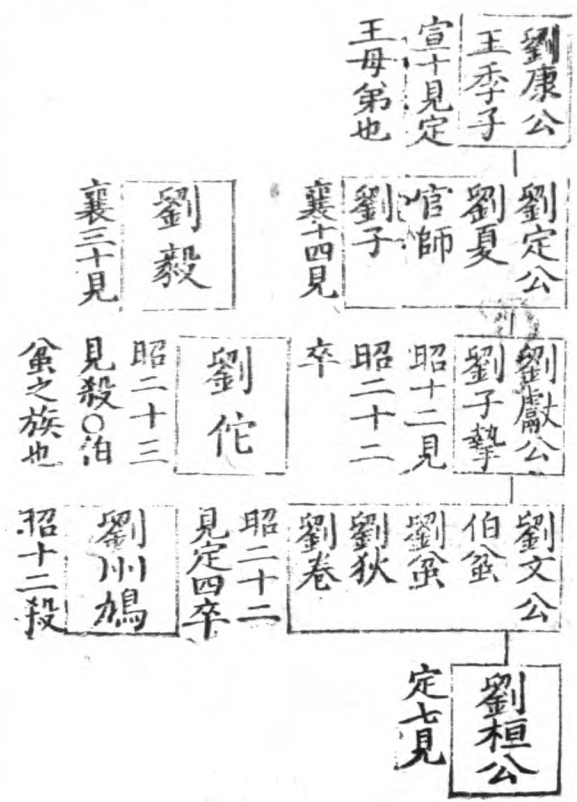 劉康公
王季子
宣十見定
王母弟也
劉定公
劉夏
官師
劉子
襄十四見
劉毅
襄三十見
劉獻公
劉子摯
昭十二見
昭二十二
卒
劉佗
昭二十三
見殺○伯
蚠之族也
劉文公
伯蚠
劉蚠
劉狄
劉卷
昭二十二
見定四卒
劉州鳩
昭十二殺
劉桓公
定七見